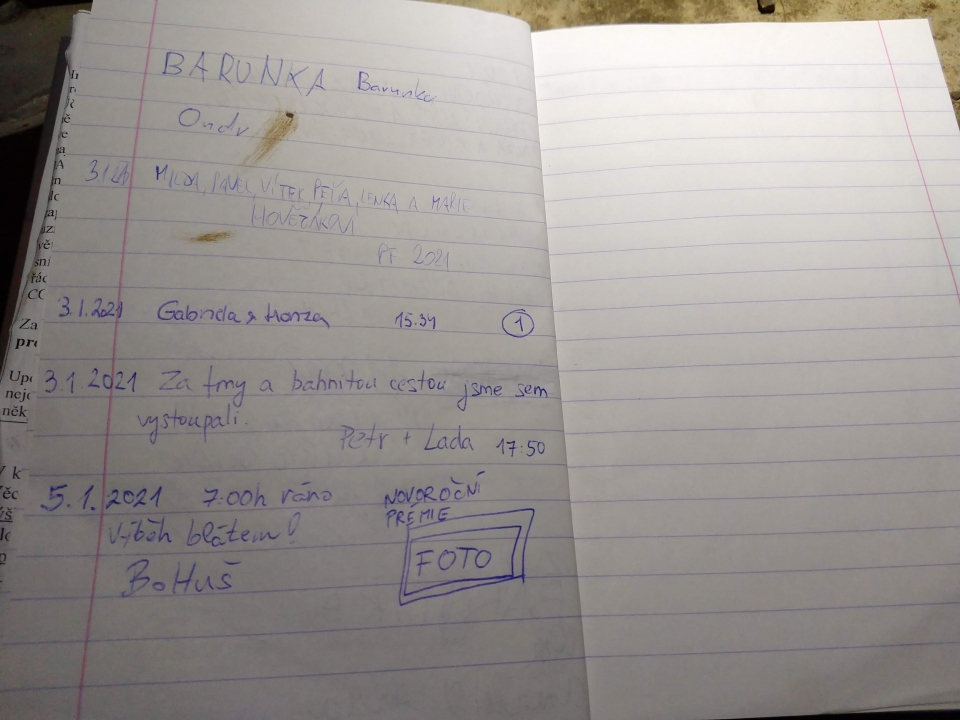 BARUNKA Barunka
Ondr
MILDA, PAVEL, VÍTEK, PEŤA, LENKA A MARIE
PF 2021
3.1.2021 Gabriela & Honza 15.34 1
3.1 2021 Za tmy a bahnitou cestou jsme sem
vystoupali.
Petr + Lada 17:50
5.1.2021 7:00h ráno NOVOROČNÍ
PRÉMIE
Výběh blátem!
FOTO
BoHuš
Za